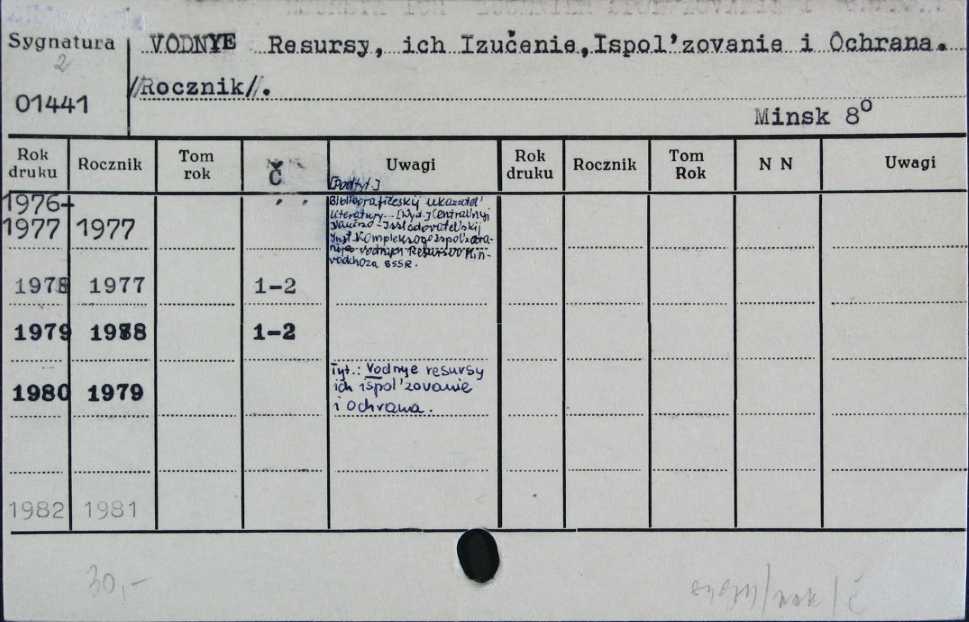 Sygnatura
2
01441
VODNYE Resursy, ich Izučenie,Ispol'zovanie i Ochrana.
//Rocznik//.
Minsk 8°
Rok druku Rocznik Tom rok Č Uwagi Rok druku Rocznik Tom Rok N N Uwagi
[Podtyt.]
1976-
1977 1977
Bibliografičeskij ukazatel'
literatury... [Wyd.] Central'nyj
Naučno-Issledovatel'skij
Inst. Kompleksnogo Ispol'zova-
nija Vodnych Resursov Min-
vodchoza BSSR.
1978 1977 1-2
1979 1988 1-2
1980 1979
Tyt.: Vodnye resursy
ich ispol'zovanie
i ochrana.
1982 1981
30,-
/rok/č